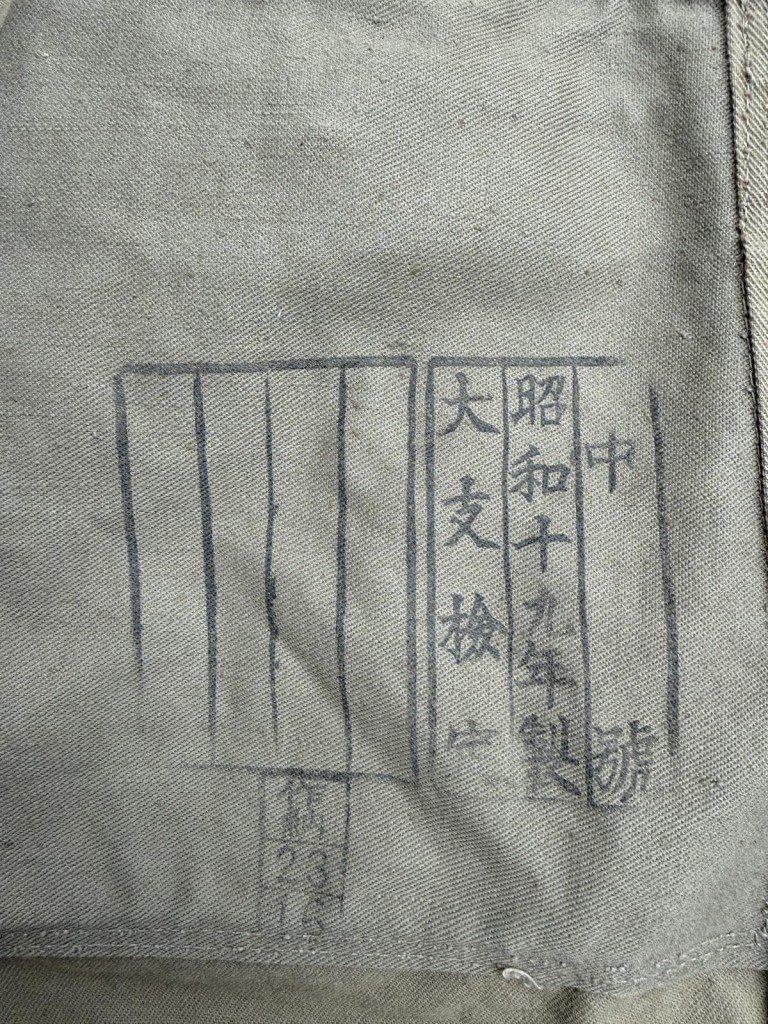 中號
昭和十九年製
大支檢
作
23